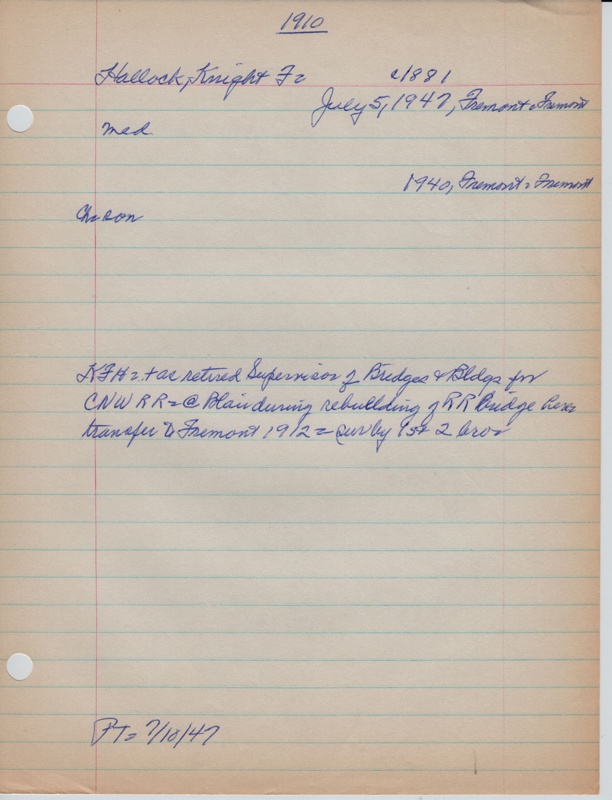 1910
Hallock, Knight F= c1881
July 5, 1947, Fremont=Fremont
med
1940, Fremont=Fremont
Ch=son
KFH=+as retired Supervisor of Bridges & Bldgs for
CNW RR=@ Blair during rebuilding of RR Bridge here=
transfer to Fremont 1912=surby 1s+ 2 bro=
PT=7/10/47